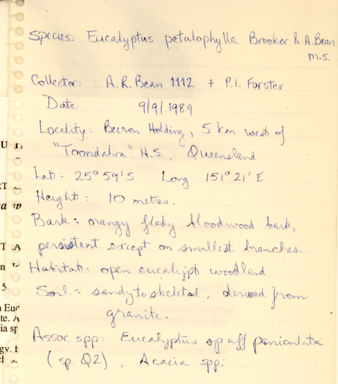 Species: Eucalyptus petalophylla Brooker & A.Bean
m.s.
Collector: : A.R. Bean 1112 + P.I. Forster
Date 9/9/1989
Locality: Beeron Holding, 5 km west of
"Toondahra" H.S., Queensland
Lat: 25° 59'S Long 151° 21'E
Height: 10 metres.
Bark: orangy flaky bloodwood bark,
persistent except on smallest branches.
Habitat: open eucalypt woodland
Soil: sandy to skeletal, derived from
granite.
Assoc spp: Eucalyptus sp aff paniculata
(sp Q2), Acacia spp.